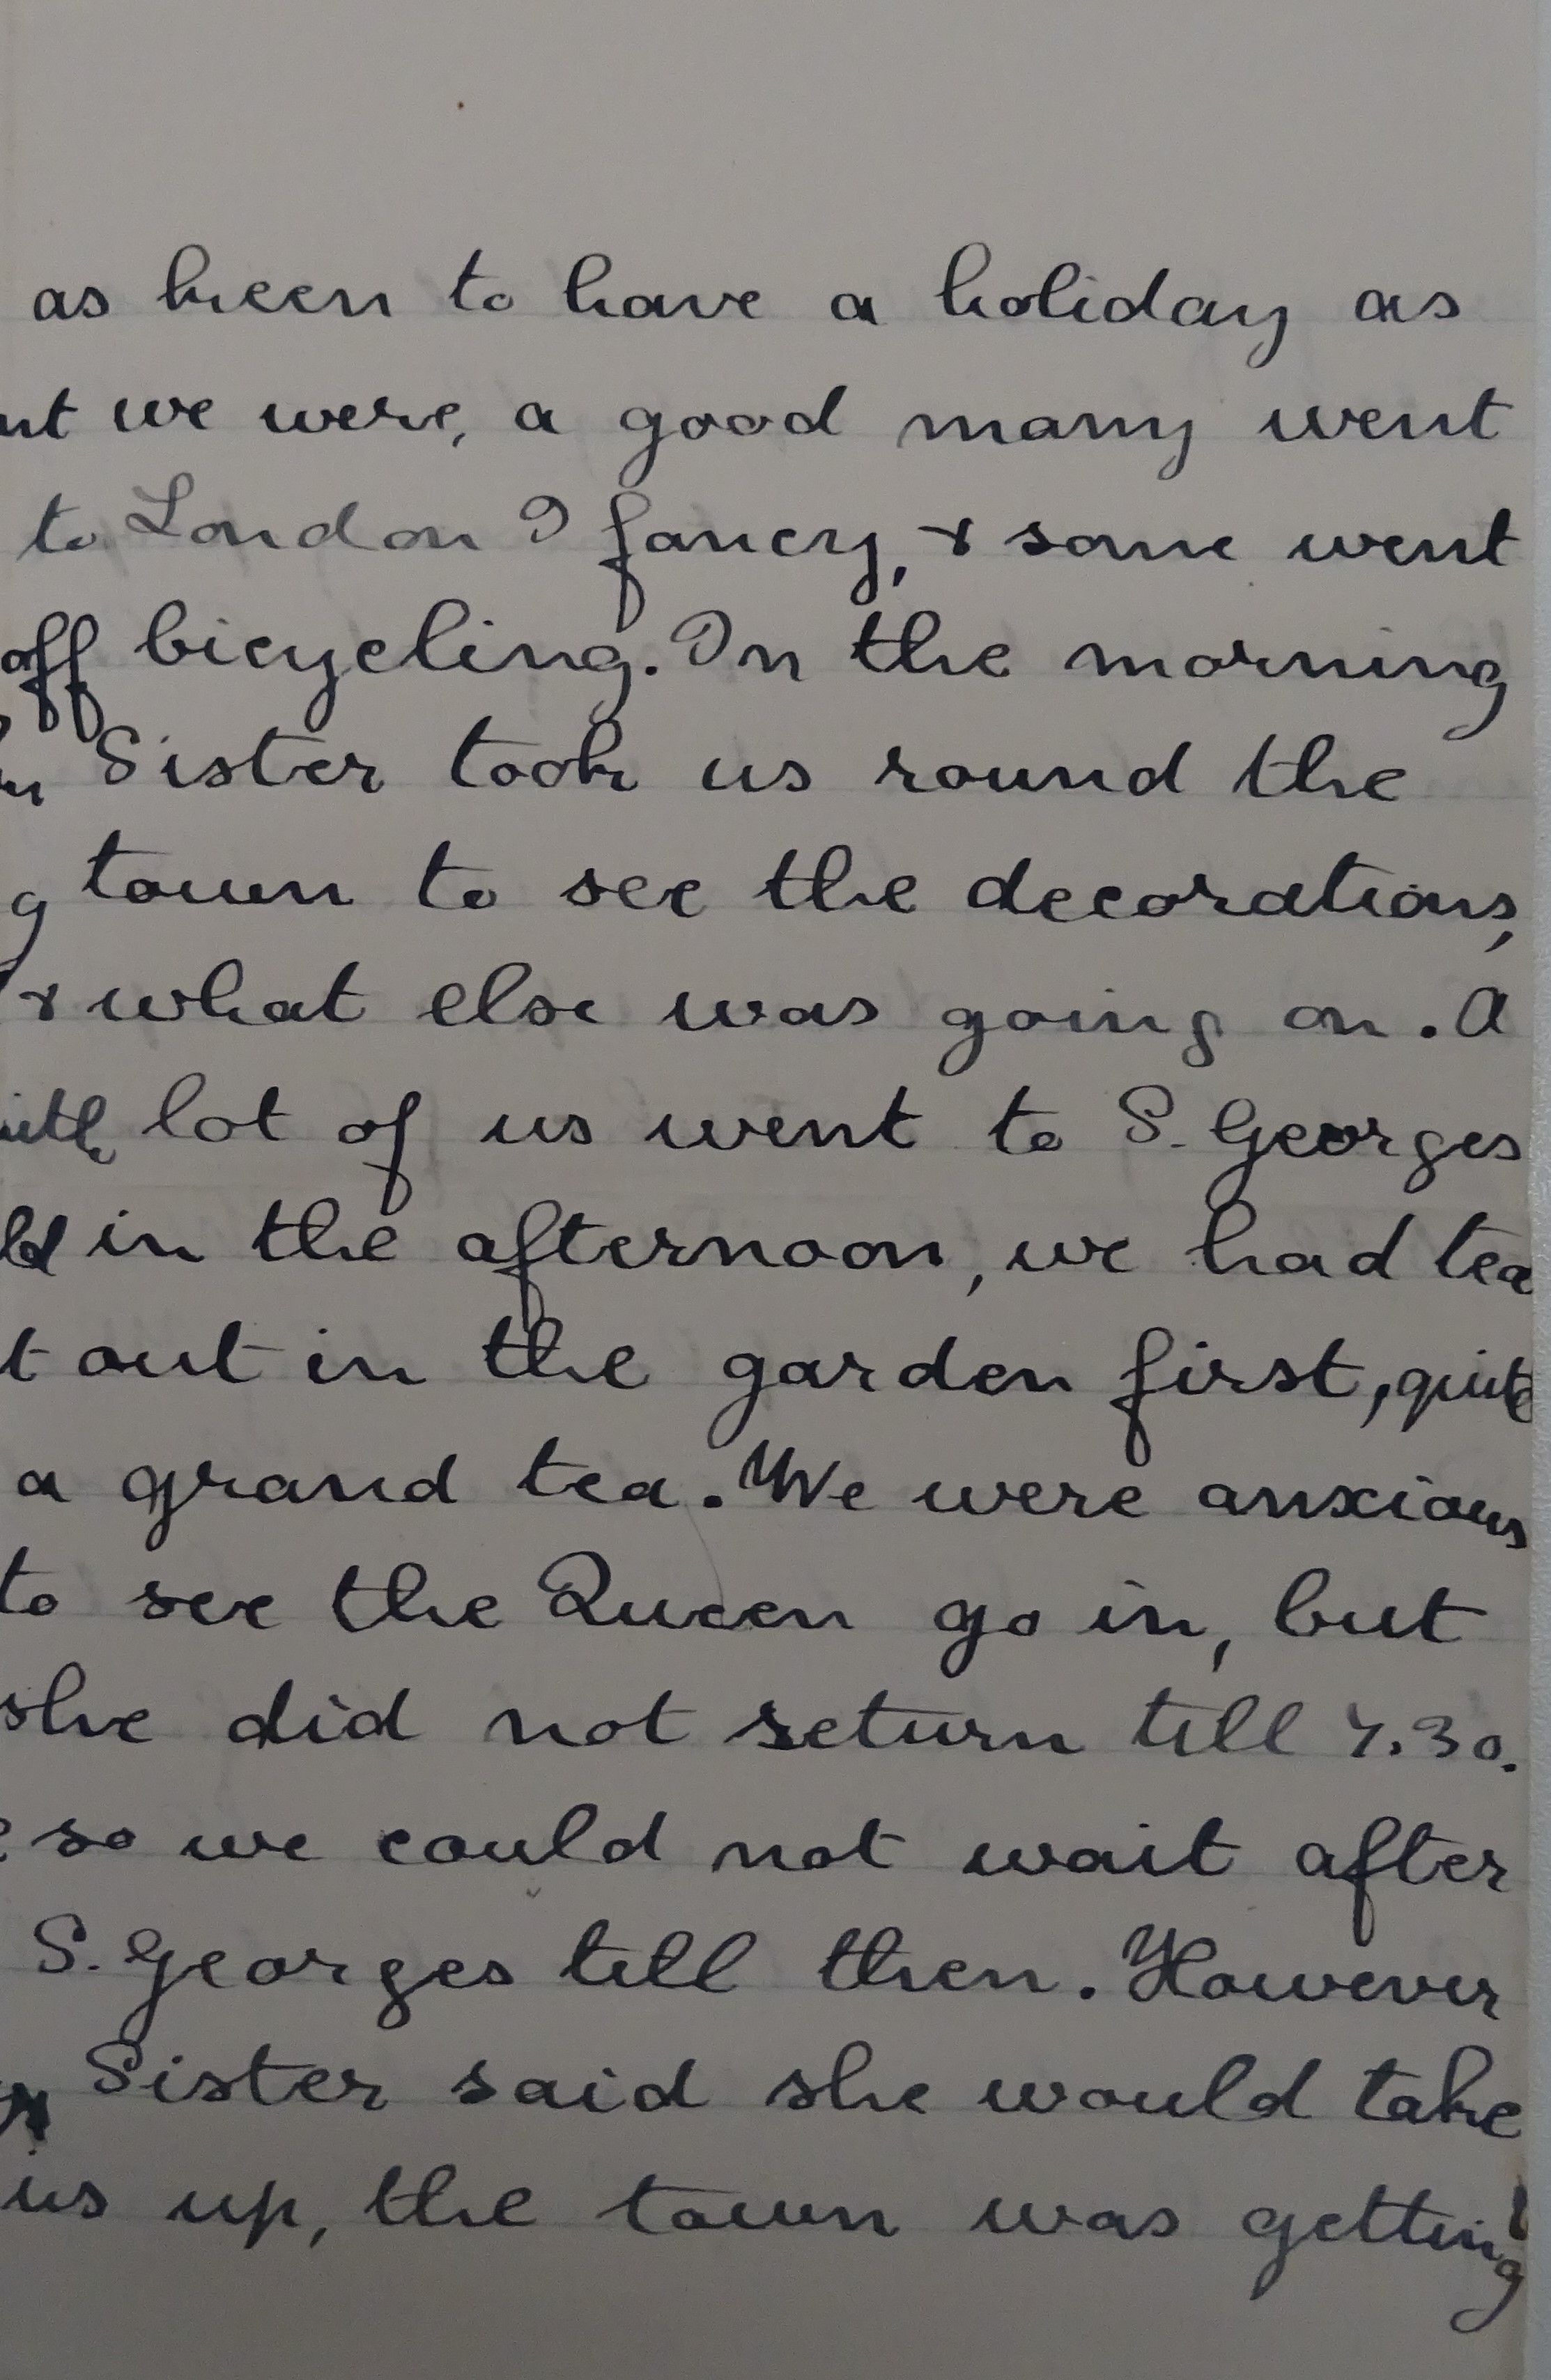 as keen to have a holiday as
we were, a good many went
to London I fancy, & some went
off bicycling. In the morning
Sister took us round the
town to see the decorations,
& what else was going on. A
lot of us went to S. Georges
in the afternoon, we had tea
out in the garden first, quite
a grand tea. We were anxious
to see the Queen go in, but
she did not return till 7.30.
so we could not wait after
S. Georges till then. However
Sister said she would take
us up, the town was getting